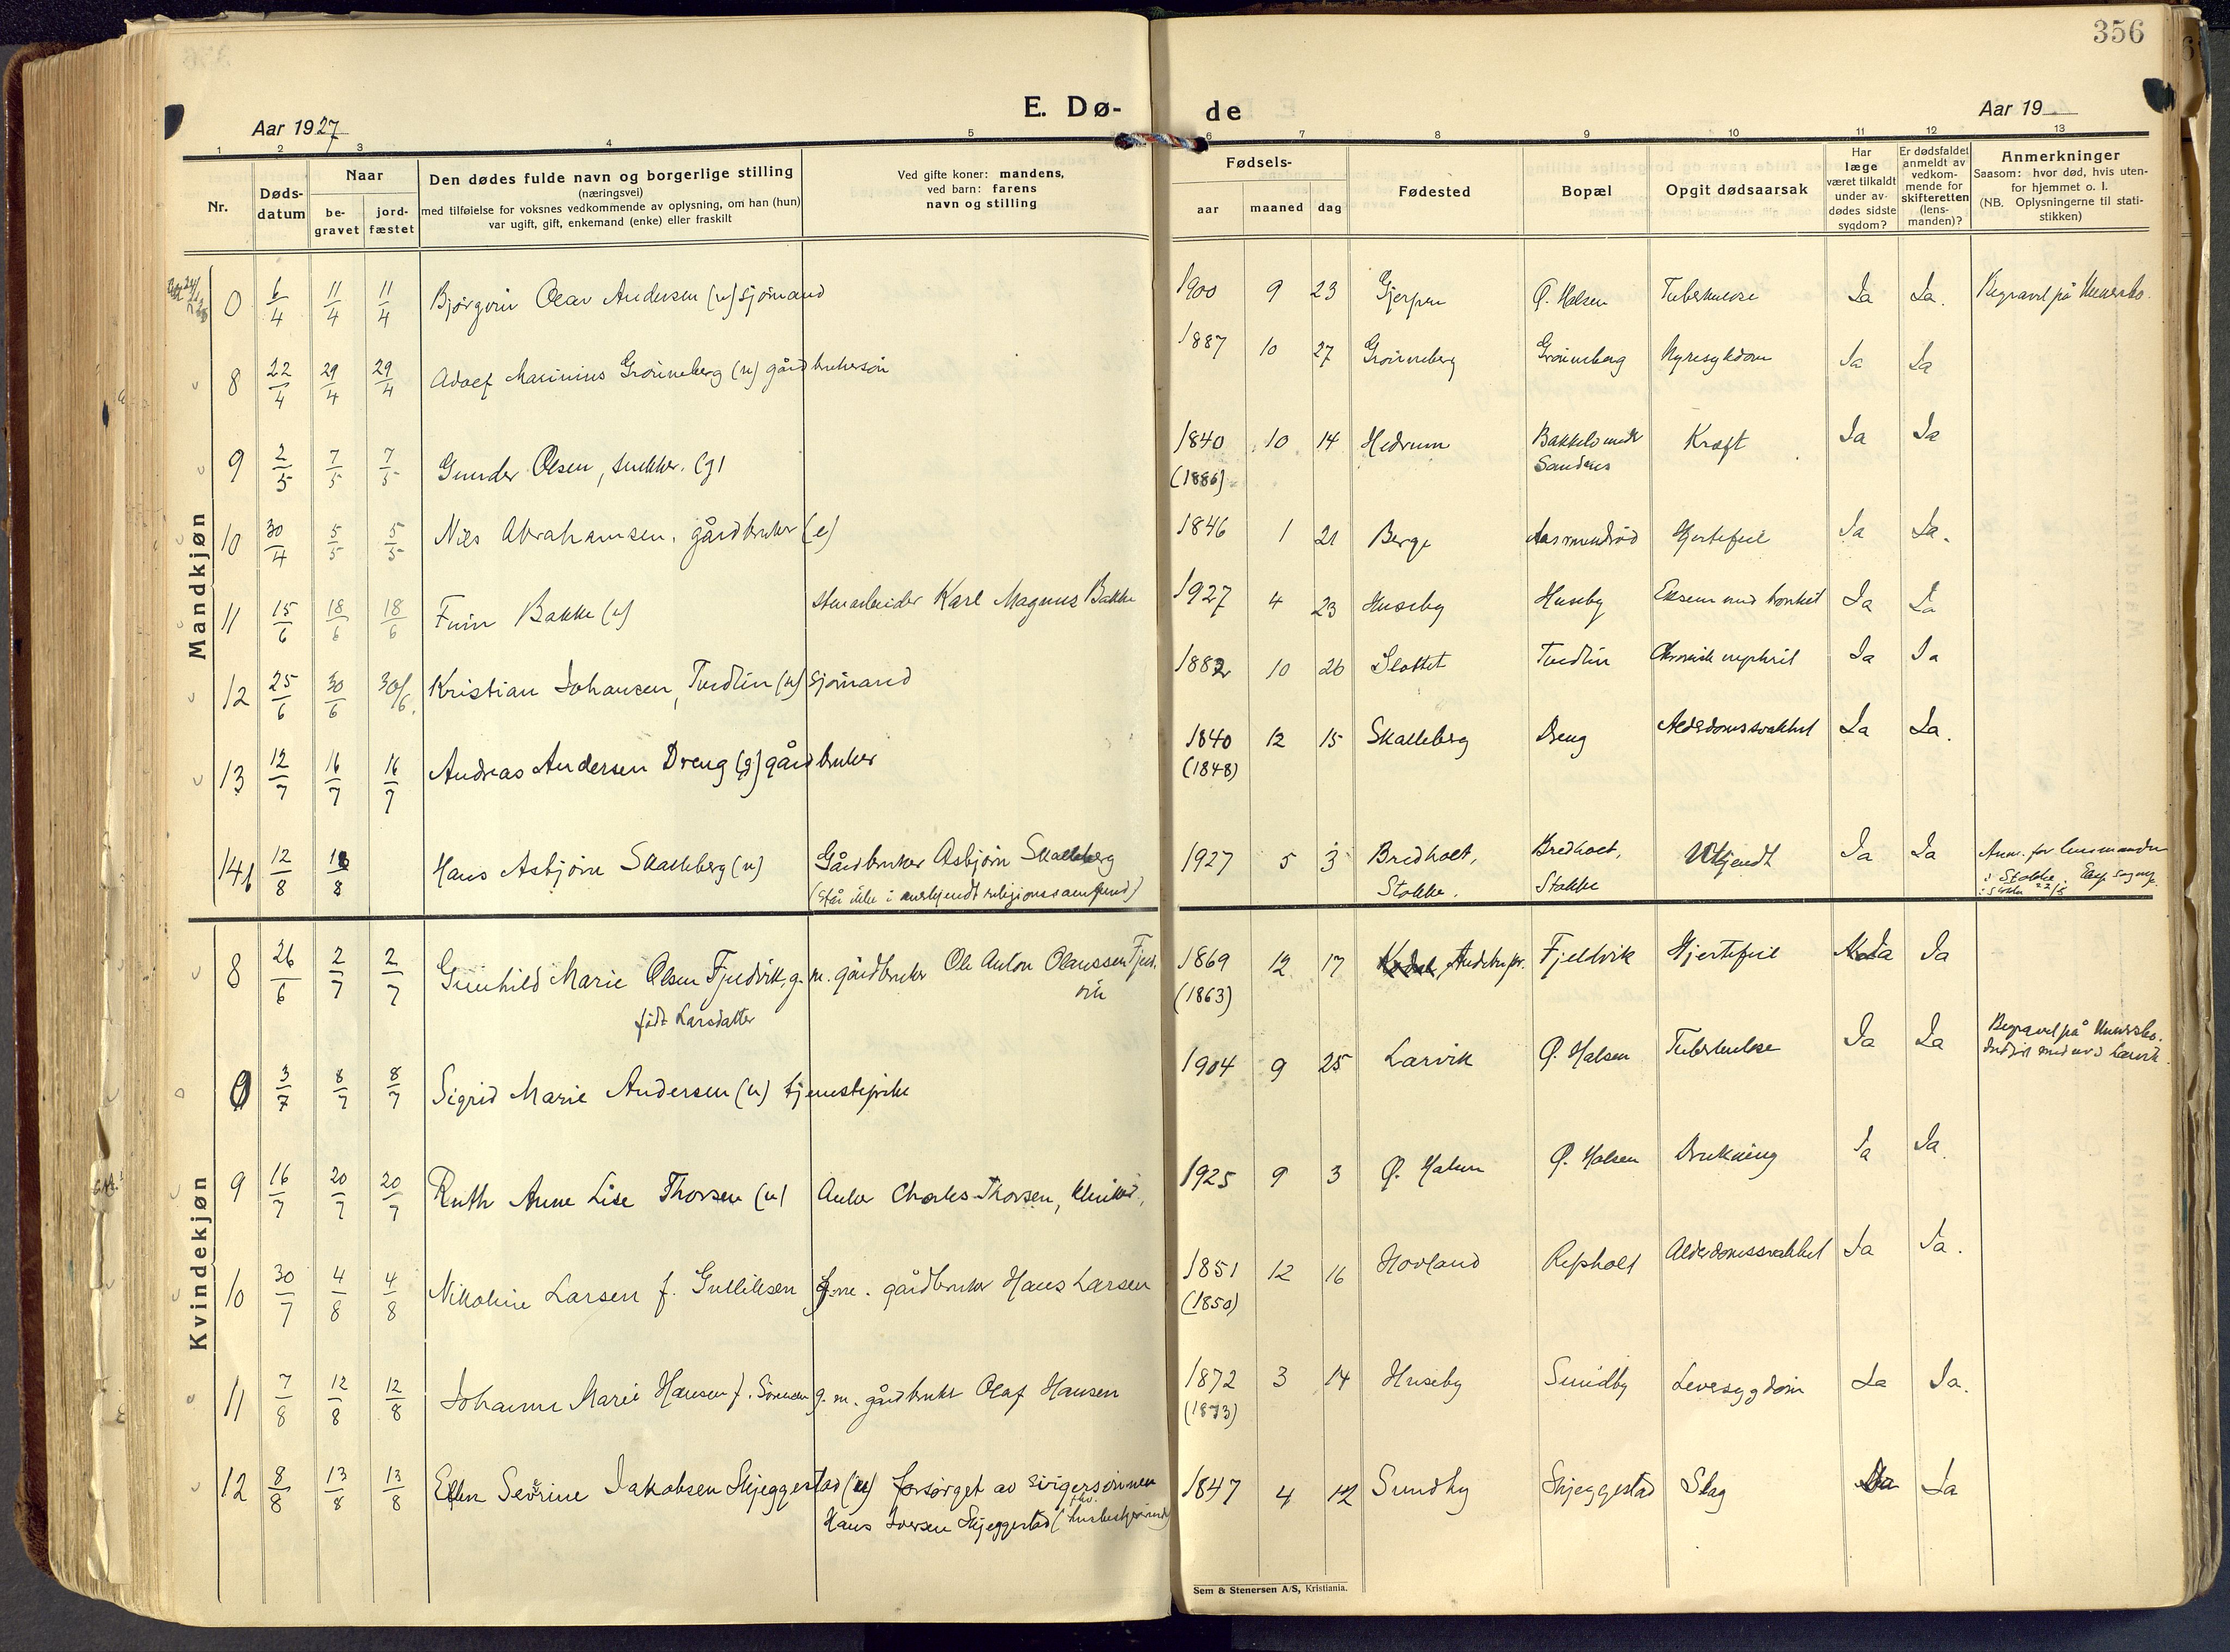 356
E. Dø-de
Aar 1927
Aar 19
1 2 3 4 5 6 7 8 9 10 11 12 13
Nr.
Døds-
datum
Naar
be-
gravet
jord-
fæstet
Den dødes fulde navn og borgerlige stilling
(næringsvei)
med tilføielse for voksnes vedkommende av oplysning, om han (hun)
var ugift, gift, enkemand (enke) eller fraskilt
Ved gifte koner: mandens,
ved barn: farens
navn og stilling
Fødsels-
aar maaned dag
Fødested
Bopæl
Opgit dødsaarsak
Har
læge
været tilkaldt
under av-
dødes sidste
sygdom?
Er dødsfaldet
anmeldt av
vedkom-
mende for
skifteretten
(lens-
manden)?
Anmerkninger
Saasom: hvor død, hvis uten-
for hjemmet o. l.
(NB. Oplysningerne til stati-
stikken)
Mandkjøn
0 6/4 11/4 11/4 Olav Andersen (u) sjømand 1900 9 23 Gjerpen Ø. Halsen Tuberkulose Ja Ja. Begravet på
8 22/4 29/4 29/4 Adolf Marinius Grønneberg (u) gårdbrukersøn 1887 10 27 Grønneberg Grønneberg Nyresykdom Ja Ja
9 2/5 7/5 7/5 Gunder Olsen, snekker. (g) 1840 10 14 Hedrum Kræft Ja Ja
(1886) Sandnes
10 30/4 5/5 5/5 Nils Abrahamsen, gårdbruker (e) 1846 1 21 Berge Aasmundrød Hjertefeil Ja Ja.
11 15/6 18/6 18/6 Finn Bakke (u) stenarbeider Karl Magnus Bakke 1927 4 23 Huseby Huseby Eksem med bronkit Ja Ja
12 25/6 30/6 30/6. Kristian Johansen, Tvedtin (u) sjømand 1882 10 26 Slottet Tvedtin Chronisk nephrit Ja Ja
13 12/7 16/7 16/7 Andreas Andersen Dreng (g) gårdbruker 1840 12 15 Skalleberg Dreng Alderdomssvakhet Ja Ja.
(1848)
14b 12/8 18/8 Hans Asbjørn Skalleberg (u) Gårdbruker Asbjørn Skalleberg 1927 5 3 Bredholt, Bredholt, Ukjendt Ja Ja Anm. for lensmanden
(Står ikke i anerkjendt religionssamfund) Stokke. Stokke i Stokke.
Kvindekjøn
8 26/6 2/7 2/7 Gunhild Marie Olsen Fjeldvik, g. m. gårdbruker Ole Anton Olaussen Fjeld- 1869 12 17 Andebu pr. Fjeldvik Hjertefeil Ja Ja
vik
født Larsdatter (1863)
0 3/7 8/7 8/7 Sigrid Marie Andersen (u) tjenestepike 1904 9 25 Larvik Ø. Halsen Tuberkulose Ja Ja Begravet på
9 16/7 20/7 20/7 Ruth Anne Lise Thorsen (u) Anker Charles Thorsen, 1925 9 3 Ø. Halsen Ø. Halsen Drukning Ja Ja.
10 30/7 4/8 4/8 Nikoline Larsen f. Gulliksen g. m. gårdbruker Hans Larsen 1851 12 16 Hovland Refsholt Alderdomssvakhet Ja Ja.
(1850)
11 7/8 12/8 12/8 Johanne Marie Hansen f. g. m. gårdbruker Olaf Hansen 1872 3 14 Huseby Sundby Leversygdom Ja Ja.
(1873)
12 8/8 13/8 13/8 Ellen Severine Jakobsen Skjeggestad (u) forsørget av svigersønnen 1847 4 12 Sundby Skjeggestad Slag Ja Ja
Hans Iversen Skjeggestad
Sem & Stenersen A/S, Kristiania.